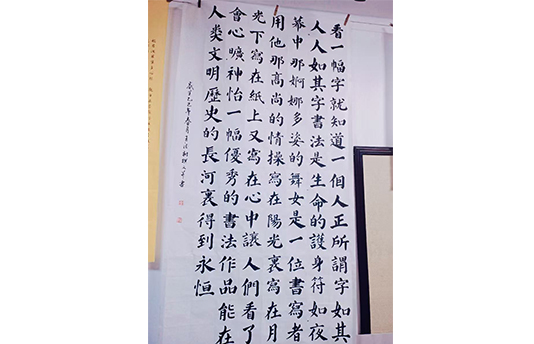 看一幅字就知道一個人正所謂字如其
人人如其字書法是生命的護身符如夜
幕中那婀娜多姿的舞女是一位書寫者
用他那高尚的情操寫在陽光裏寫在月
光下寫在紙上又寫在心中讓人們看了
會心曠神怡一幅優秀的書法作品能在
人类文明歷史的長河裏得到永恒